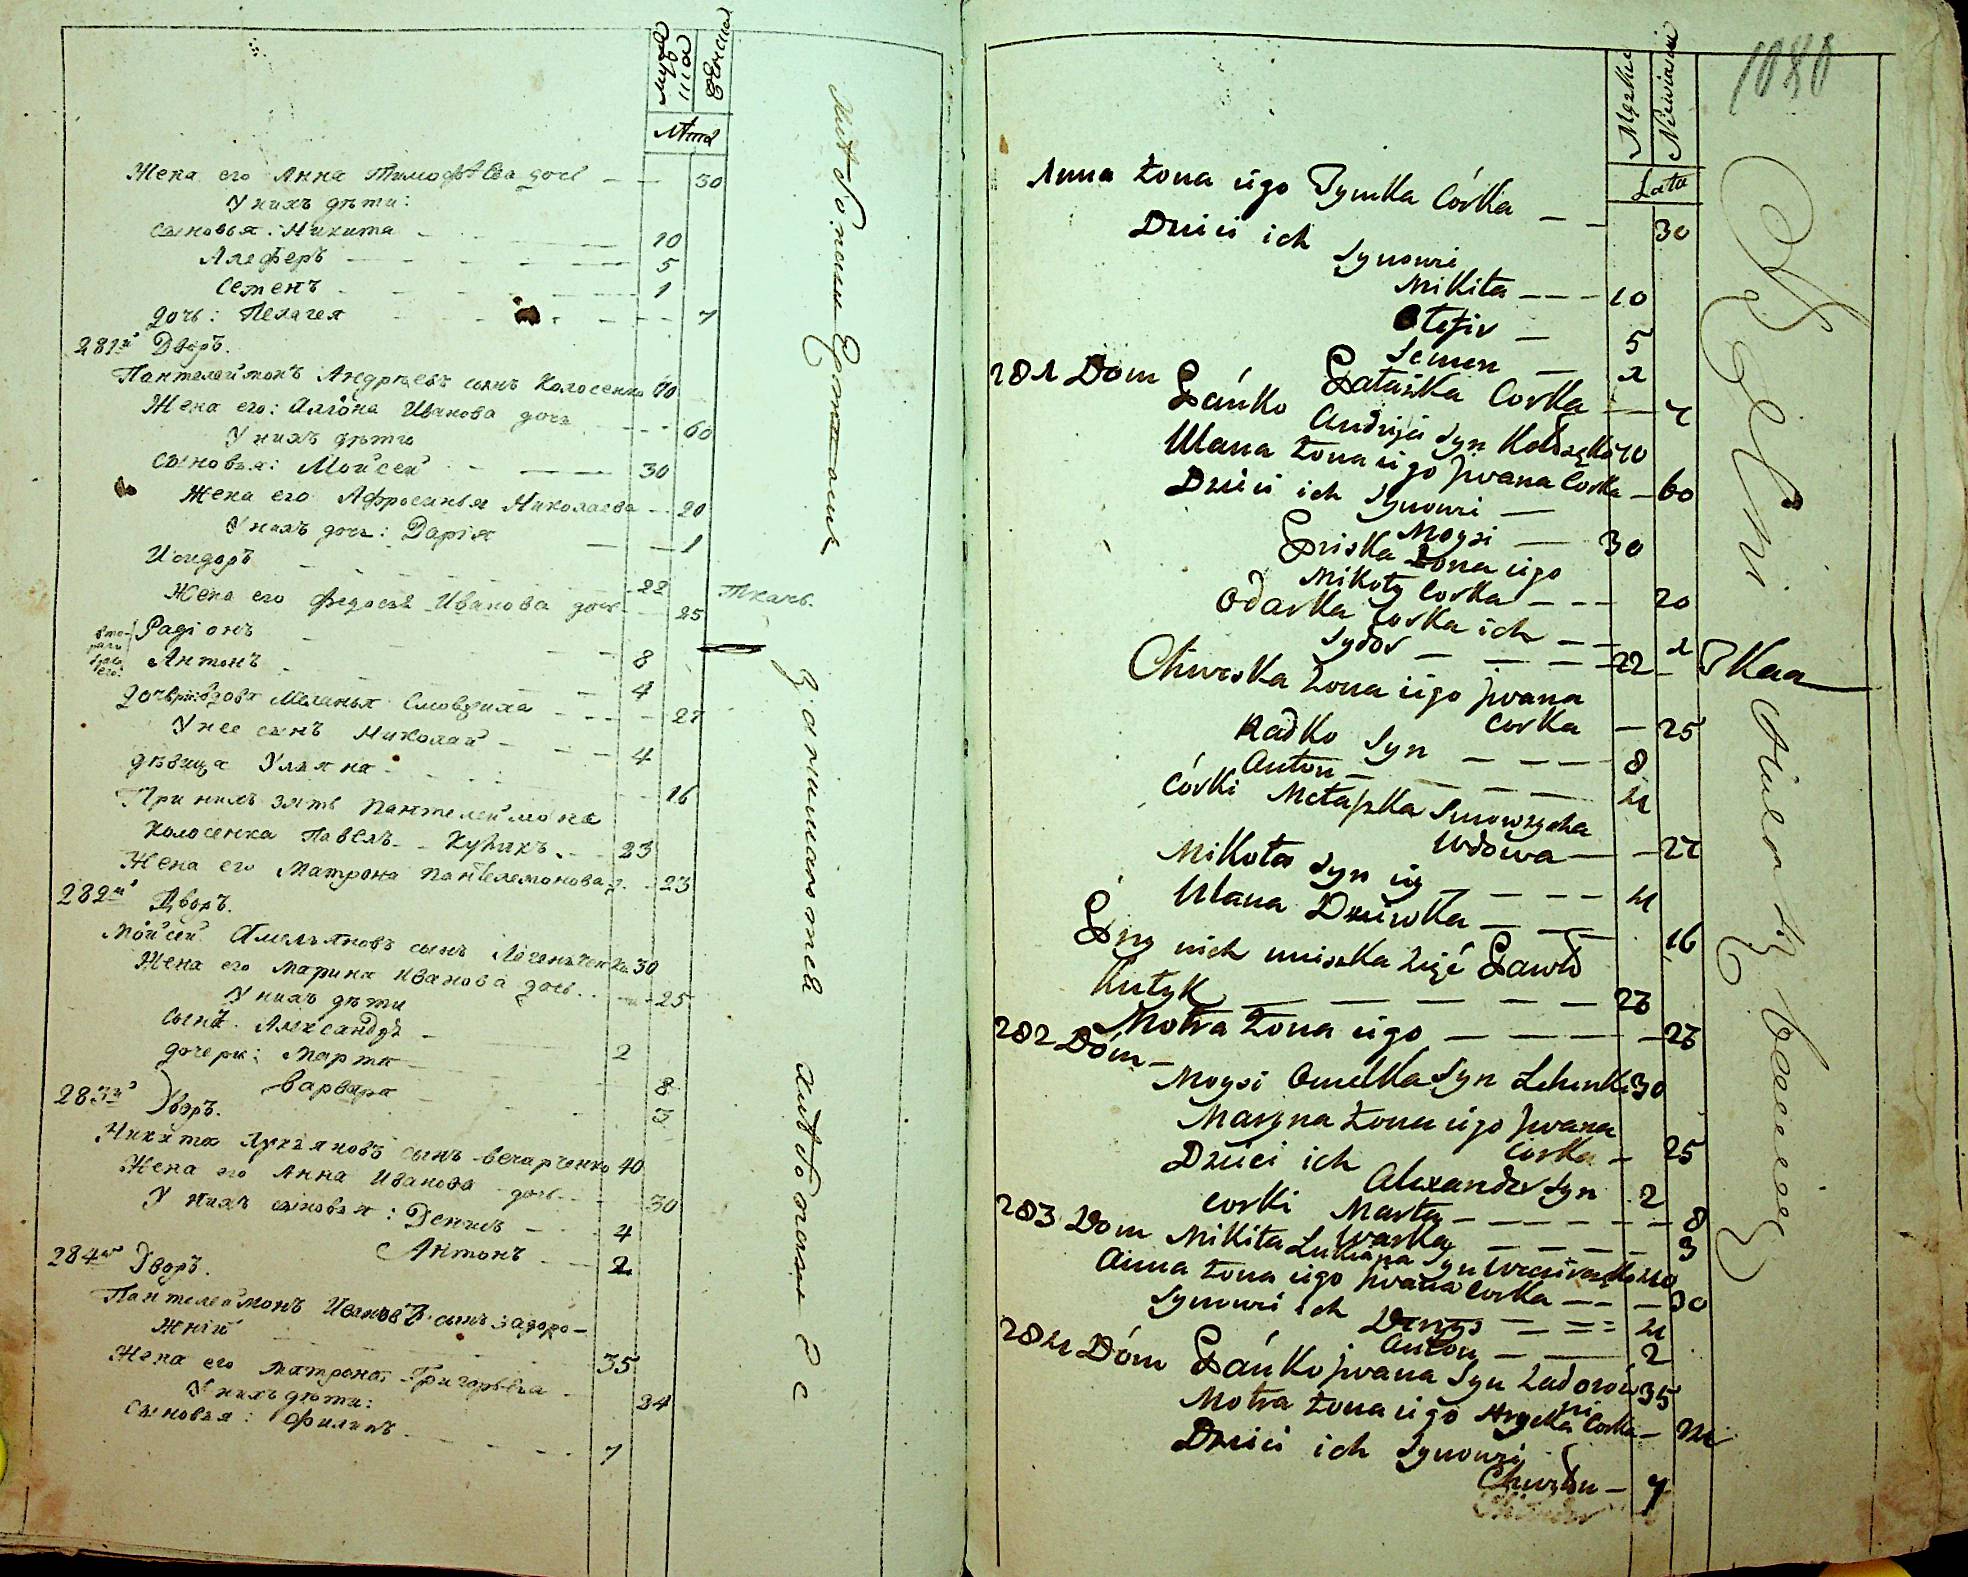 мужеска
женска
Лѣта
Жена его Анна Тимофѣева дочь 30
У нихъ дѣти:
Сыновья: Никита 10
Алеферъ 5
Семенъ 1
дочь: Пелагея 7
281й Дворъ.
Пантелеймонъ Андрѣевъ сынъ Колосенко 70
Жена его: Алiона Иванова дочь 60
У нихъ дѣти
Сыновья: Мойсей 30
Жена его Афросинья Николаева 20
У нихъ дочь: Дарiя 1
Исидоръ 22
Жена его Федосья Иванова дочь 25
Ткачь.
Радiонъ 8
Антонъ 4
дочь вдова Меланья Смовзиха 27
У нее сынъ Николай 4
дѣвица Уляна 16
При нихъ зять Пантелеймона
Колосенка Павелъ Кулыкъ 23
Жена его Матрона Пантелемонова 23
282й Дворъ.
Мойсей Амельяновъ сынъ 30
Жена его Марина Иванова дочь 25
У нихъ дѣти
Сынъ Александръ 2
дочери: Марта 8
Варвара 3
283й Дворъ.
Никита Лукьяновъ сынъ Вечарченко 40
Жена его Анна Иванова дочь 30
У нихъ сыновья: Денисъ 4
Антонъ 2
284й Дворъ.
Пантелеймонъ Ивановъ сынъ Задоро-
жнiй 35
Жена его Матрона Григорьева 34
У нихъ дѣти:
Сыновья: Филипъ 7
занимается
1080
Męzkie
Niewiasti
Lata
Anna żona iego Tymka Córka 30
Dzieci ich
Synowie
Mikita 10
Ołefir 5
Semen 1
Pałażka Corka 7
281 Dom Pańko Andrija Syn 70
Ulana żona iego Jwana Corka 60
Dzieci ich Synowie
Moysi 30
Priska żona iego
Mikoły Corka 20
Odarka Corka ich 1
Sydor 22 Tkacz
Chweska żona iego Jwana
Corka 25
Radko Syn 8
Anton 4
Córki Mełaszka Smowzycha
Wdowa 27
Mikoła Syn iey 4
Ulana Dziewka 16
Przy nich mieszka Zięć Pawło
Kułyk 23
Motra żona iego 23
282 Dóm
Moysi Omelka Syn 30
Maryna żona iego Jwana
Corka 25
Dzieci ich Alexander Syn 2
Corki Marta 8
Warka 3
283 Dom Mikita Lukiana Syn 40
Anna żona iego Jwana Corka 30
Synowie ich Denys 4
Anton 2
284 Dóm Pańko Jwana Syn Zadoroż 35
ni
Motra żona iego Hryćka Corka 34
Dzieci ich Synowie
7